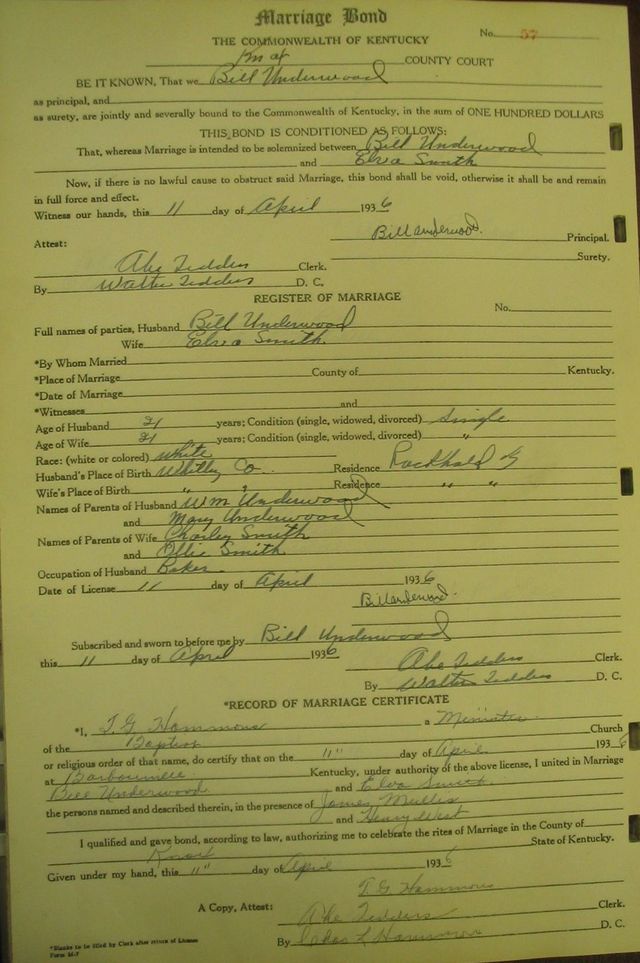 Marriage Bond
No. 57
THE COMMONWEALTH OF KENTUCKY
Knox COUNTY COURT
BE IT KNOWN, That we Bill Underwood
as principal, and
as surety, are jointly and severally bound to the Commonwealth of Kentucky, in the sum of ONE HUNDRED DOLLARS
THIS BOND IS CONDITIONED AS FOLLOWS:
That, whereas Marriage is intended to be solemnized between Bill Underwood
and Elva Smith
Now, if there is no lawful cause to obstruct said Marriage, this bond shall be void, otherwise it shall be and remain
in full force and effect.
Witness our hands, this 11 day of April 1936
Bill Underwood. Principal.
Attest: Surety.
Abe Tedders Clerk.
By Walter Tedders D. C.
REGISTER OF MARRIAGE
No.
Full names of parties, Husband Bill Underwood
Wife Elva Smith
*By Whom Married
*Place of Marriage County of Kentucky.
*Date of Marriage
*Witnesses and
Age of Husband 21 years; Condition (single, widowed, divorced) Single
Age of Wife 21 years; Condition (single, widowed, divorced) "
Race: (white or colored) white
Husband's Place of Birth Whitley Co. Residence Rockhold Ky
Wife's Place of Birth " " Residence " "
Names of Parents of Husband Wm Underwood
and Mary Underwood
Names of Parents of Wife Charley Smith
and Ollie Smith
Occupation of Husband Baker
Date of License 11 day of April 1936
Bill Underwood.
Subscribed and sworn to before me by Bill Underwood
this 11 day of April 1936
Abe Tedders Clerk.
By Walter Tedders D. C.
*RECORD OF MARRIAGE CERTIFICATE
*I, T. G. Hammons a Minister
of the Baptist Church
or religious order of that name, do certify that on the "11" day of April 1936
at Barbourville Kentucky, under authority of the above license, I united in Marriage
Bill Underwood and Elva Smith
the persons named and described therein, in the presence of James Mills
and Henry West
I qualified and gave bond, according to law, authorizing me to celebrate the rites of Marriage in the County of
Knox State of Kentucky.
Given under my hand, this "11" day of April 1936
T. G. Hammons
A Copy, Attest: Abe Tedders Clerk.
By Chas L Hammons D. C.
*Blanks to be filled by Clerk after return of License